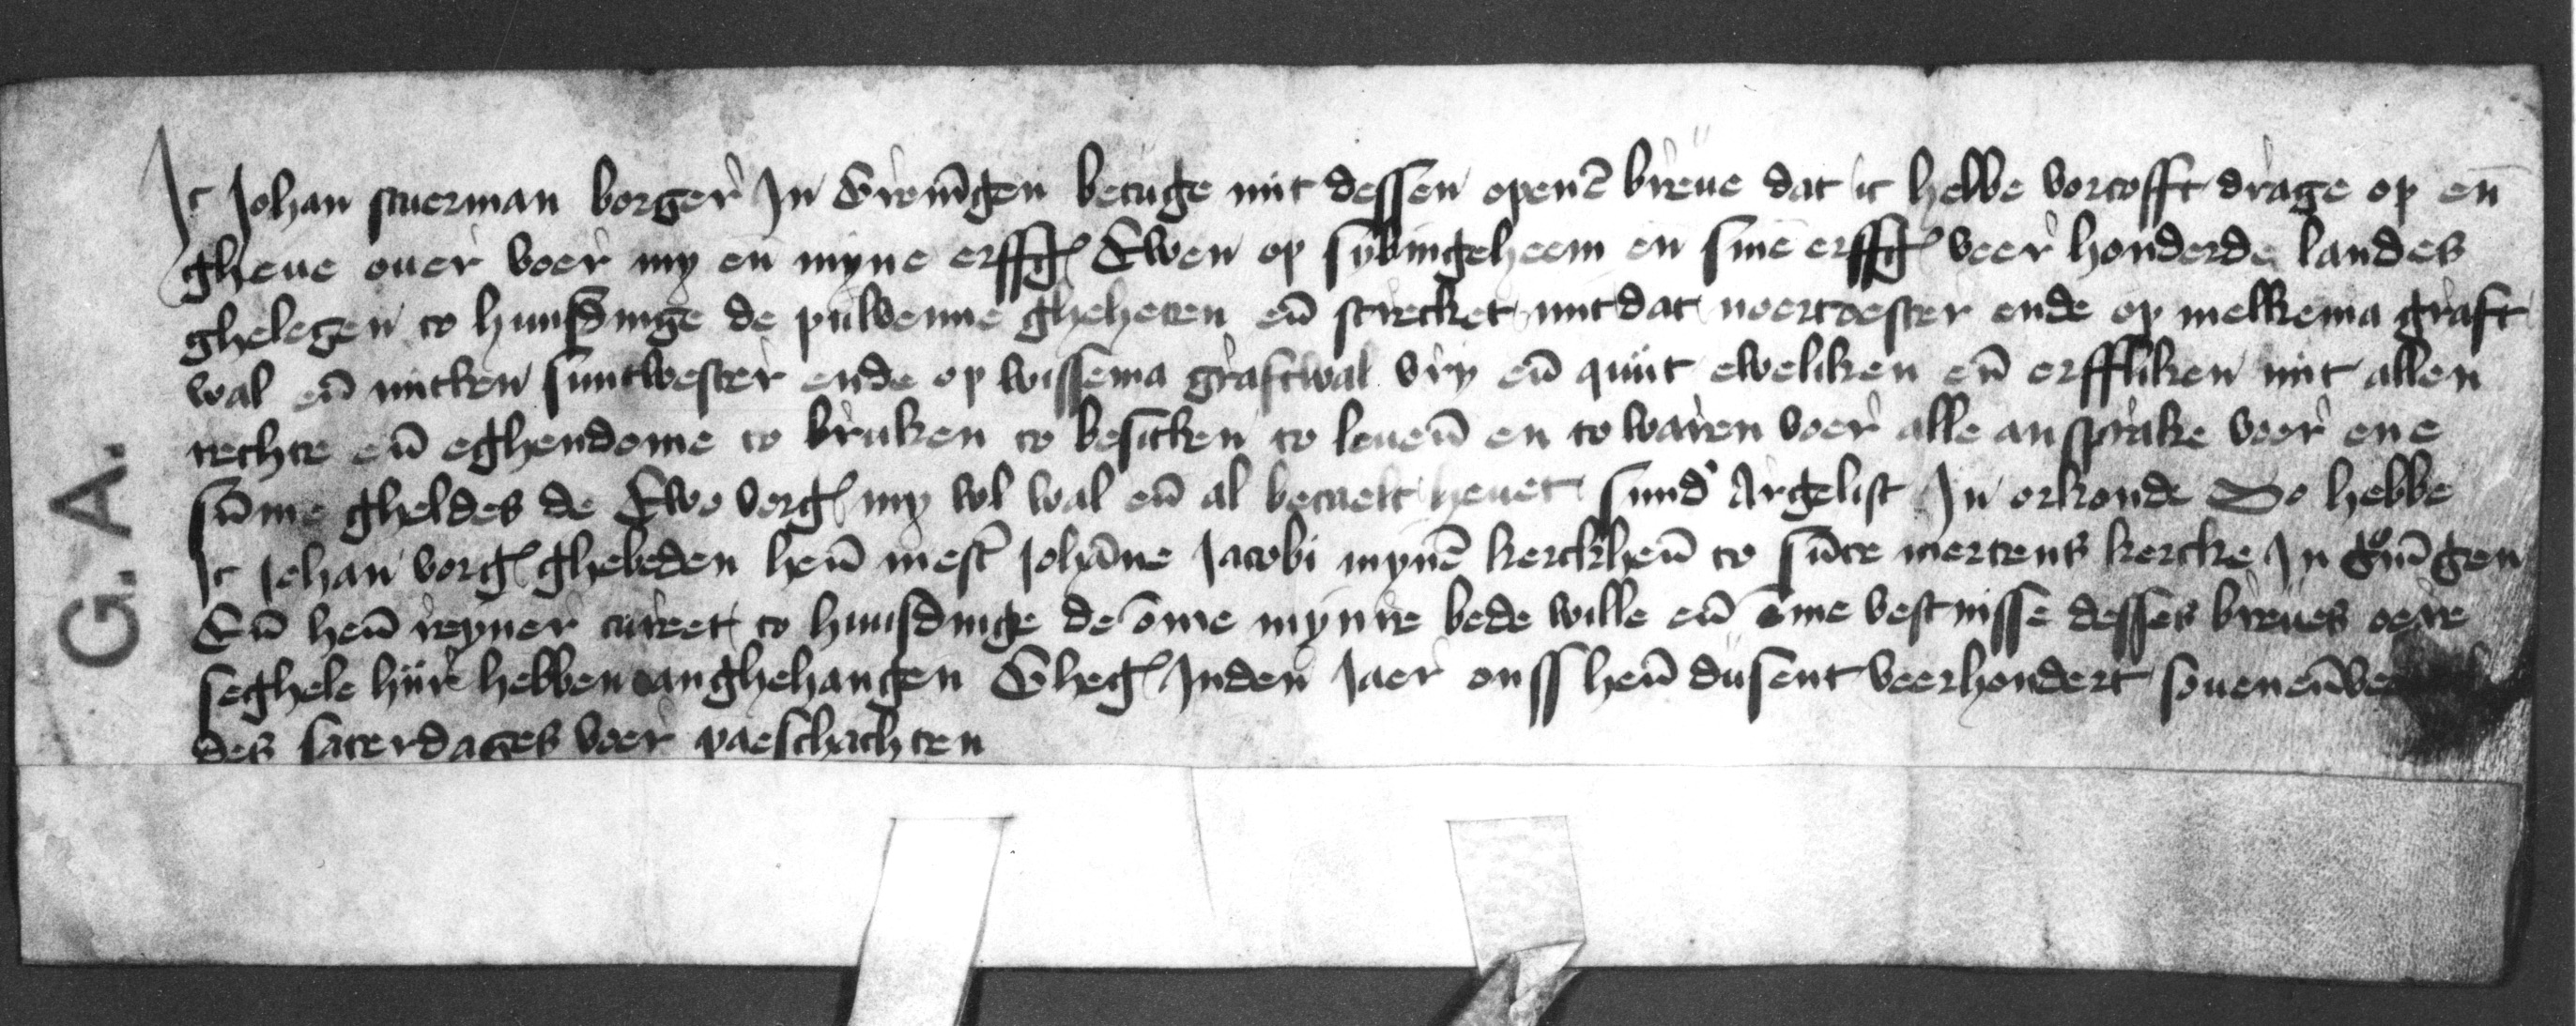 Ic Johan scuerman borger In Gronīgen betuge mit dessen openē breue dat ic hebbe vorcofft drage op eñ
gheue ouer voer my eñ myne erffg Ewen op sybingeheem eñ sinē erffg veer honderde landes
ghelegen to huusdinge de pulwenne gheheten eñ strecket mit dat noertoester ende op melkema graft
wal eñ mitken suutwester ende op wissema graftwal vry eñ quiit eweliken eñ erffliken mit allen
rechte eñ eghendome to bruken to besitten to leueñ en to waren voer alle ansprake voer ene
sūme gheldes de Ewo vorg my wl wal eñ al betaelt heuet sund' Argelist In orkonde So hebbe
Ic Johan vorg ghebeden heñ mest' Johāne Jacobi mynē kerckheñ to sūte mertens kercke In Gronīgen
Eñ heñ reyner cureet to huusdinge de ōme mynre bede wille eñ ōme vestnisse desses breues oere
seghele hiir hebben anghehangen Gheg Inden Jaer onss heñ dusent veerhondert soueneñve
des saterdages voer paeschachten
G. A.